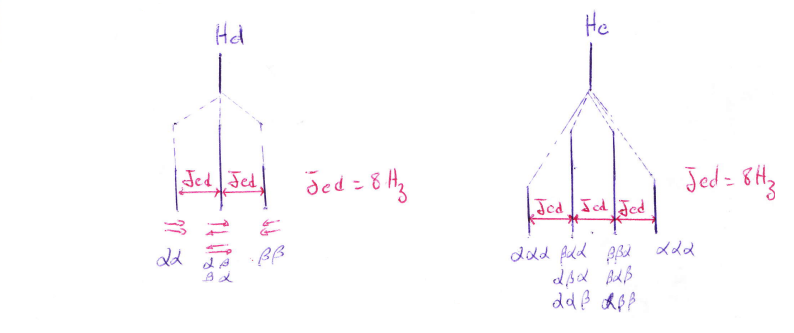 Hd
Hc
Jcd Jcd
Jcd = 8Hz
Jcd Jcd Jcd
Jcd = 8Hz
αα αβ ββ
βα
ααα βαα ββα ααα
αβα βαβ
ααβ αββ